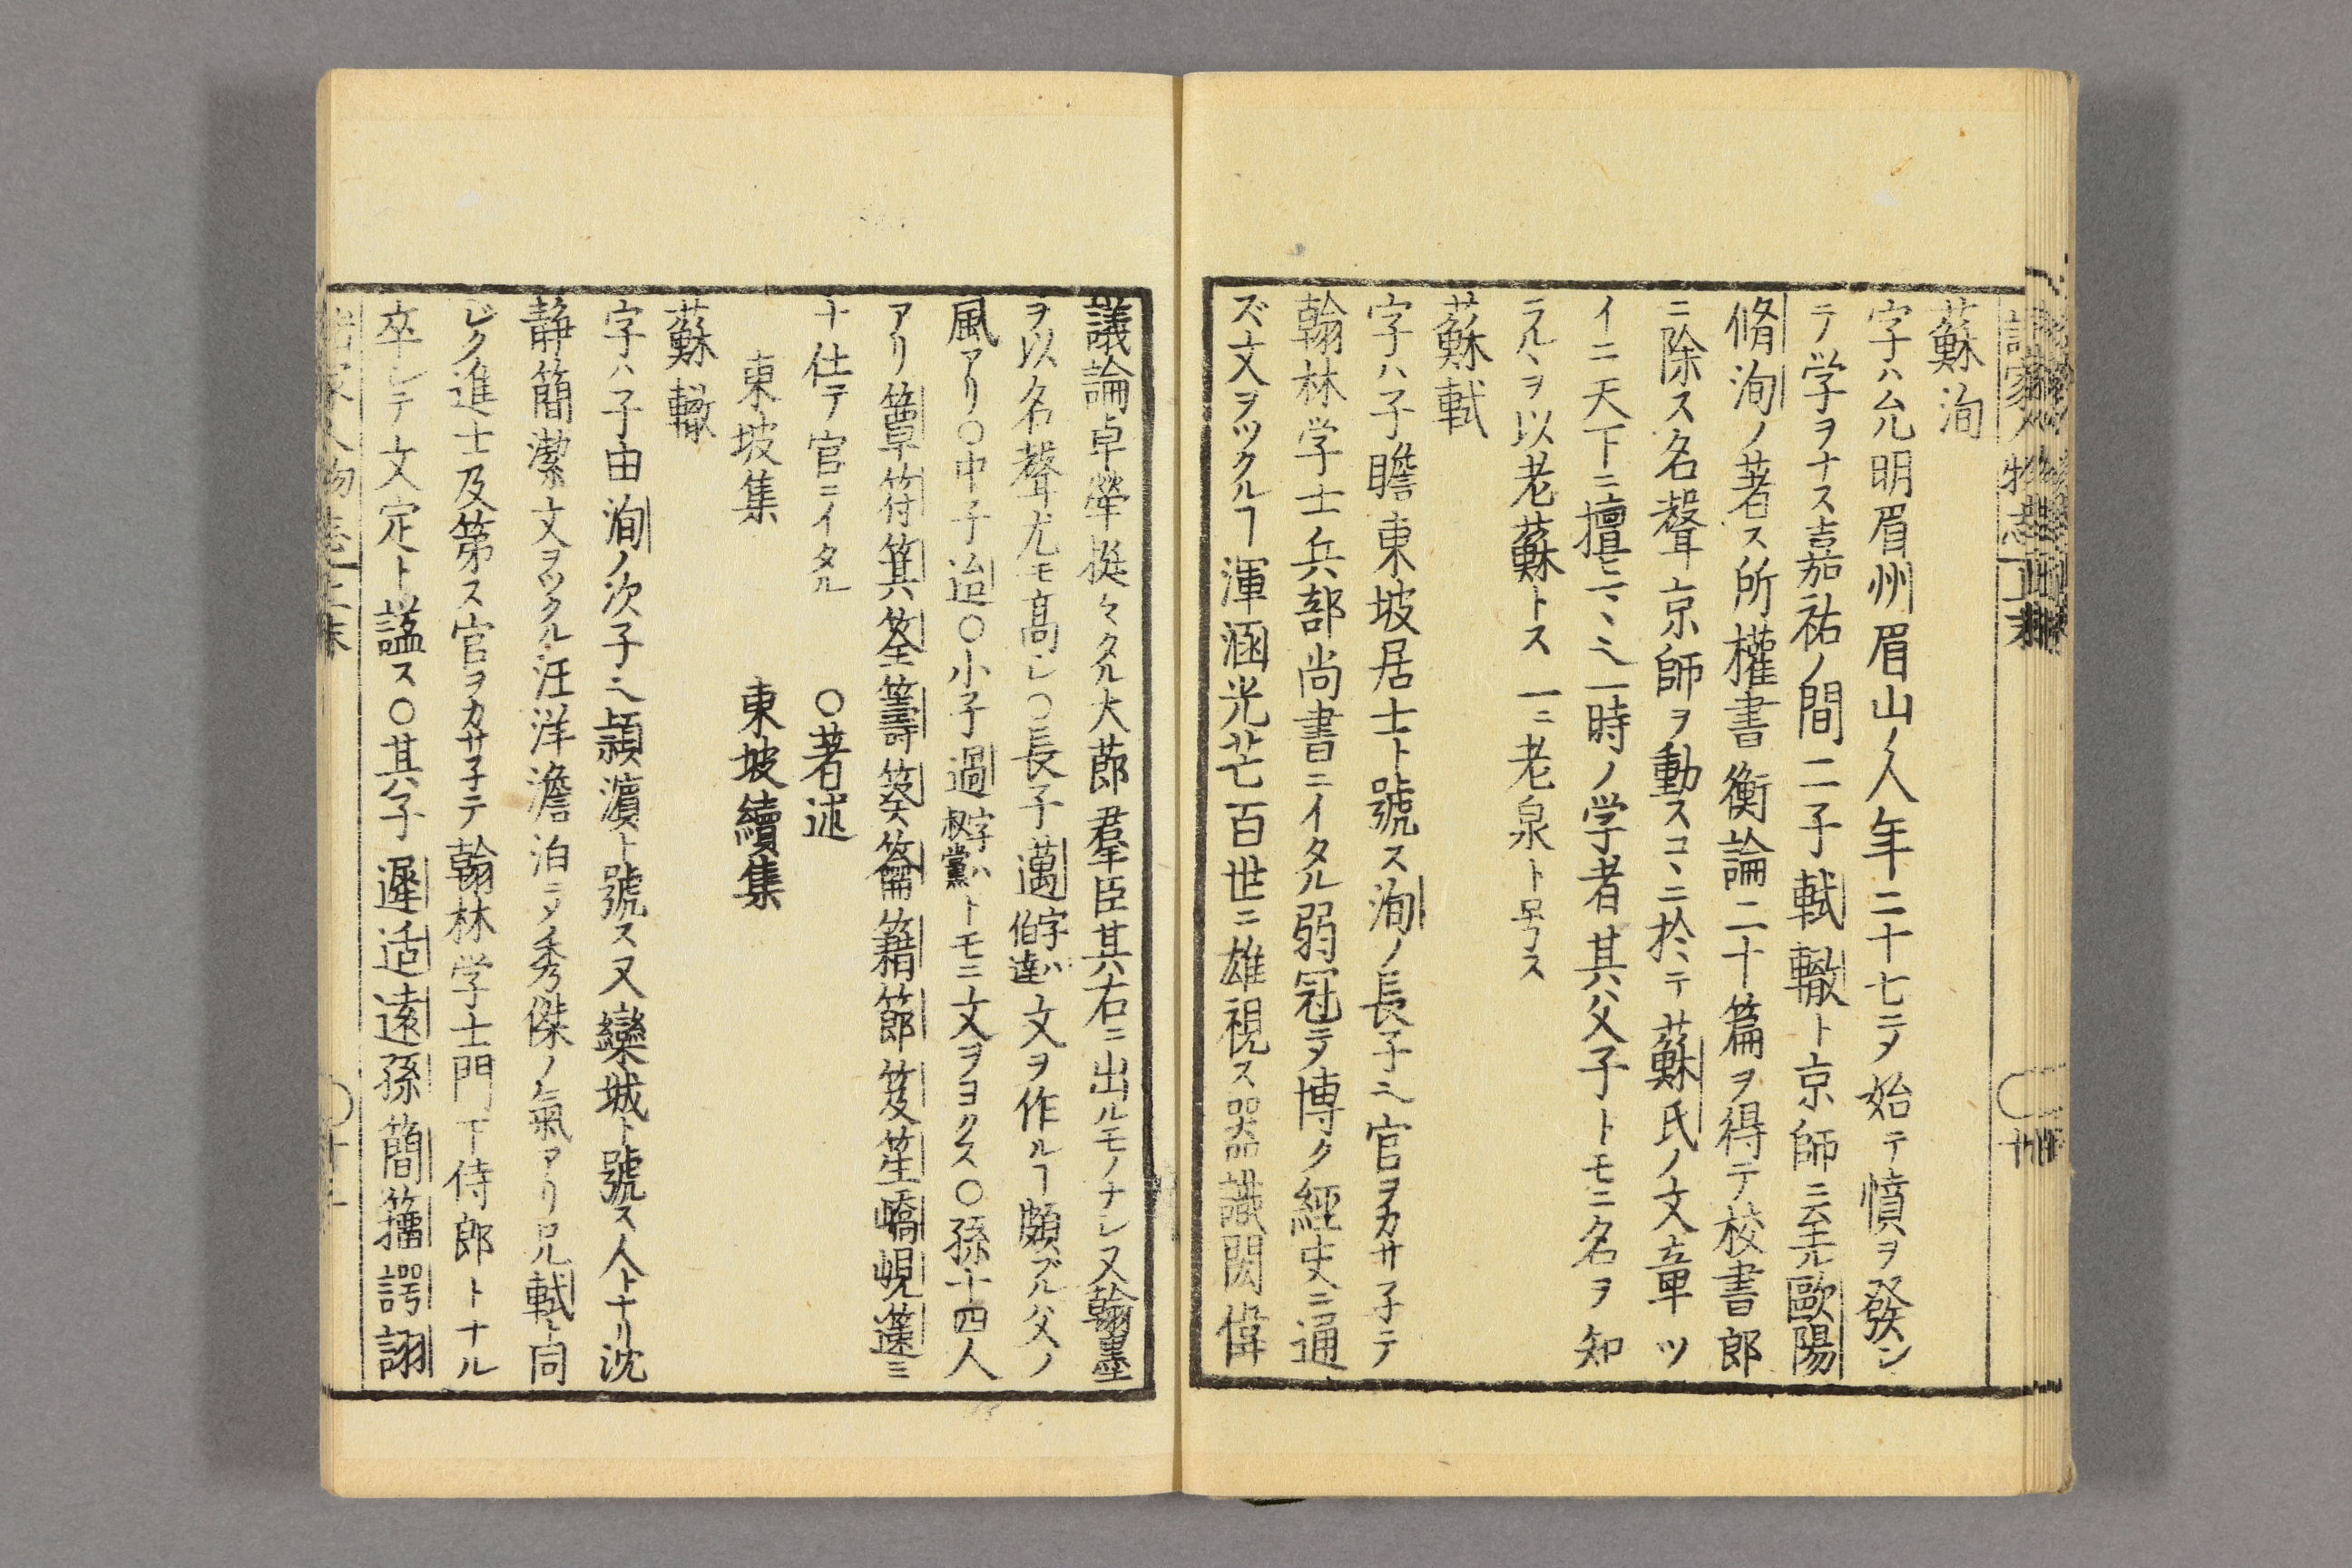 諸家人物志 上末
蘇洵
字ハ允明眉州眉山ノ人年二十七ニ〆始テ憤ヲ發シ
テ学ヲナス嘉祐ノ間二子軾轍ト京師ニ至ル歐陽
脩洵ノ著ス所權書衡論二十篇ヲ得テ校書郎
ニ除ス名聲京師ヲ動スコヽニ於テ蘇氏ノ文章ツ
イニ天下ニ擅ニス一時ノ学者其父子トモニ名ヲ知
ラルヽヲ以老蘇トス一ニ老泉ト号ス
蘇軾
字ハ子瞻東坡居士ト號ス洵ノ長子ニ〆官ヲカサ子テ
翰林学士兵部尚書ニイタル弱冠ニ〆博ク經史ニ通
ズ文ヲツクルヿ渾涵光芒百世ニ雄視ス器識閎偉
議論卓犖挺々タル大莭羣臣其右ニ出ルモノナシ又翰墨
ヲ以名聲尤モ高シ○長子邁字ハ伯達文ヲ作ルヿ頗ブル父ノ
風アリ○中子迨○小子過字ハ叔黨トモニ文ヲヨクス○孫十四人
アリ簞符箕筌籌筴籥籍節笈笙嶠峴篷ミ
ナ仕テ官ニイタル　○著述
東坡集　東坡續集
蘇轍
字ハ子由洵ノ次子ニ〆潁濵ト號ス又欒城ト號ス人トナリ沈
静簡潔文ヲツクル汪洋澹泊ニ〆秀傑ノ氣アリ兄軾ト同
ジク進士及第ス官ヲカサ子テ翰林学士門下侍郎トナル
卒シテ文定ト諡ス○其子遲适遠孫簡籀諤詡
諸家人物志 上末